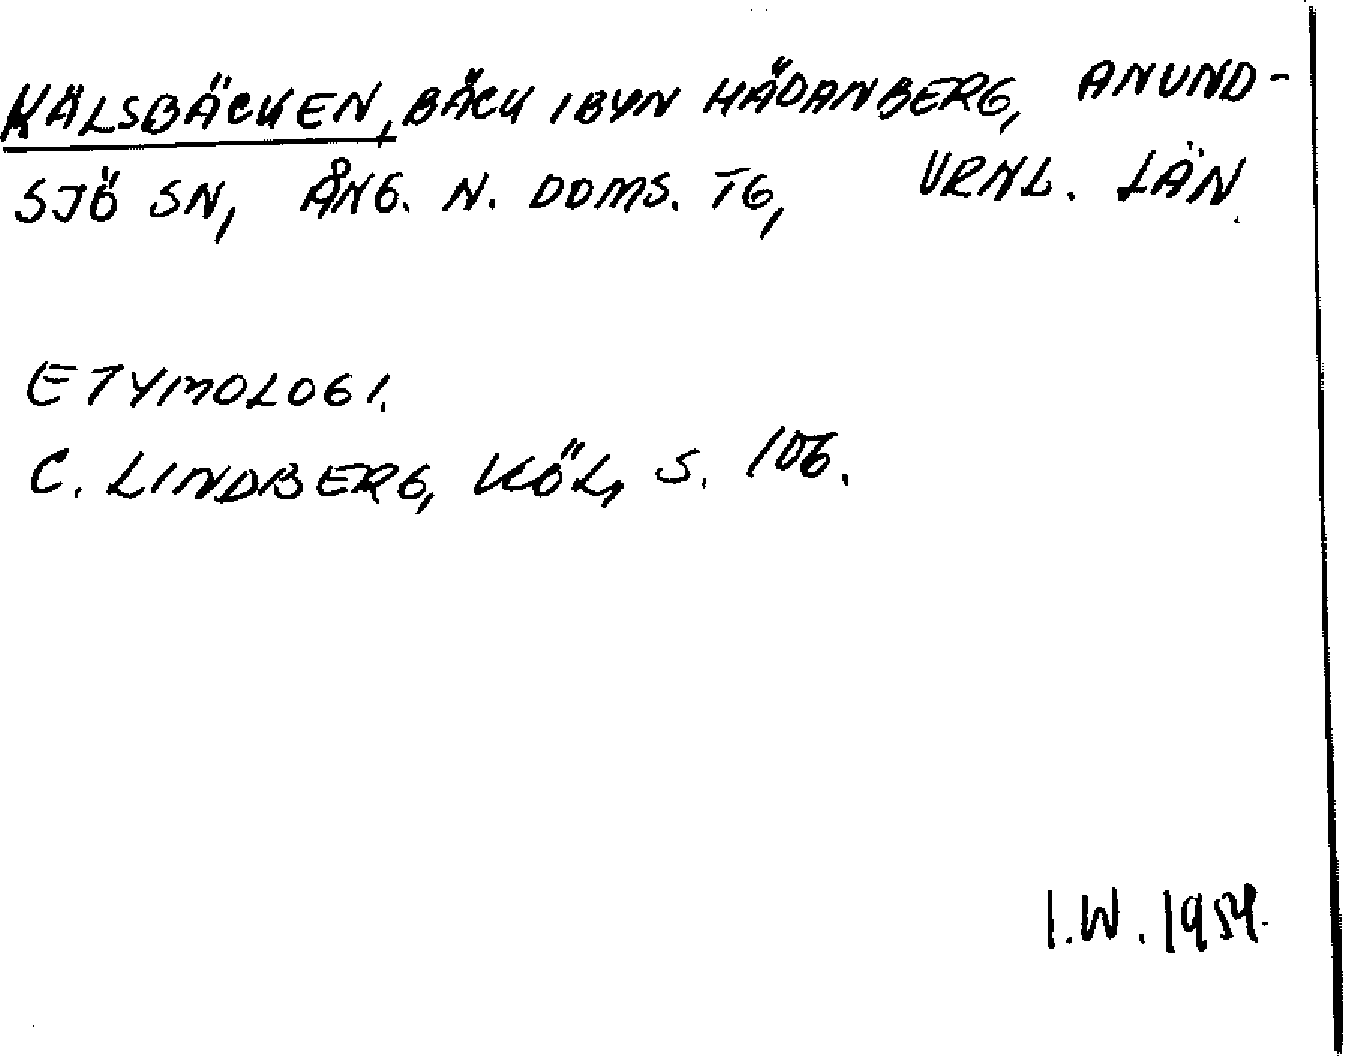 KÄLSBÄCKEN, BÄCK I BYN HÄDANBERG, ANUND-
SJÖ SN, ÅNG. N. DOMS. TG, VRNL. LÄN.
ETYMOLOGI.
C. LINDBERG, KÖL, S. 106.
I.W. 1954.